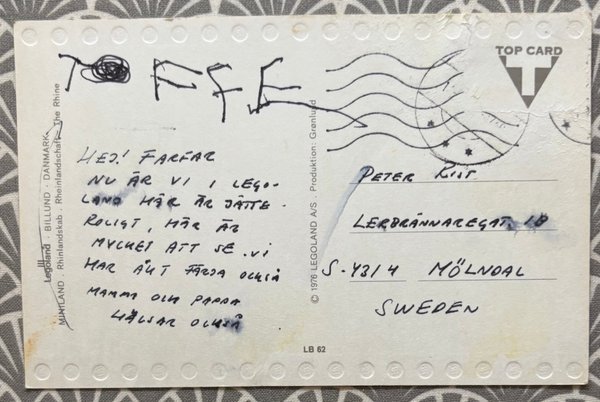 TOFFE
TOP CARD
T
Legoland · BILLUND · DANMARK
MINILAND · Rhinlandskab · Rheinlandschaft · The Rhine
HEJ! FARFAR
NU ÄR VI I LEGO-
LAND HÄR ÄR JÄTTE-
ROLIGT, HÄR ÄR
MYCKET ATT SE. VI
HAR ÅKT FÄRJA OCKSÅ
MAMMA OCH PAPPA
HÄLSAR OCKSÅ
© 1976 LEGOLAND A/S · Produktion: Grønlund
PETER
LERBRÄNNAREGAT. 1B
S-4314 MÖLNDAL
SWEDEN
LB 62